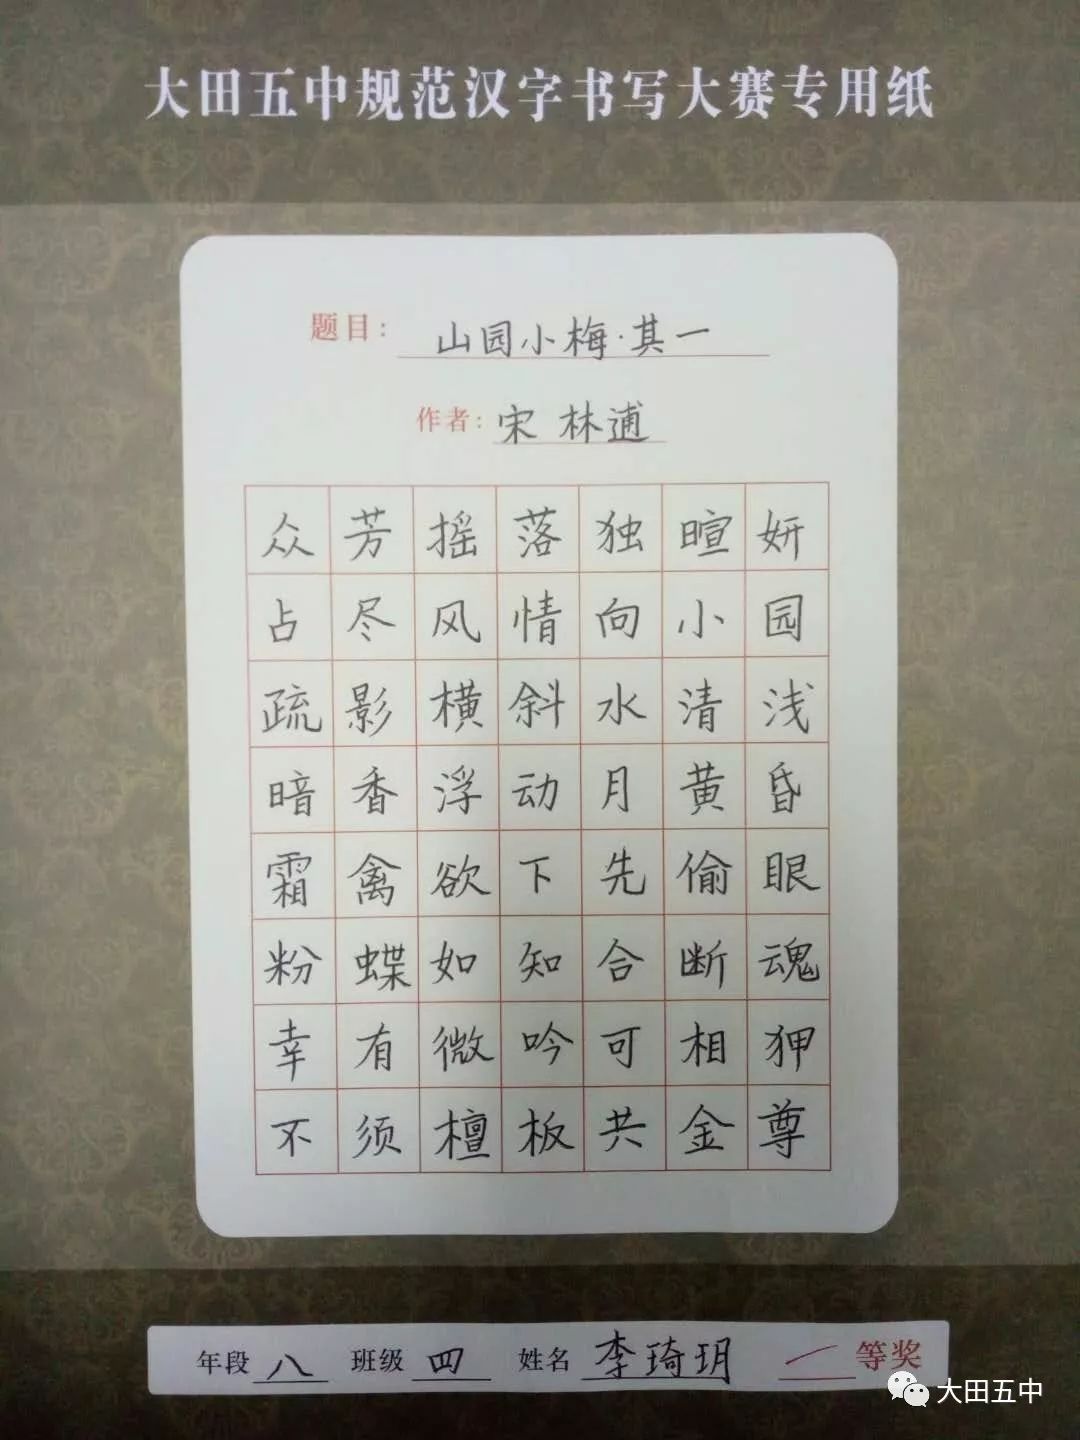 大田五中规范汉字书写大赛专用纸
题目：山园小梅·其一
作者：宋 林逋
众芳摇落独暄妍
占尽风情向小园
疏影横斜水清浅
暗香浮动月黄昏
霜禽欲下先偷眼
粉蝶如知合断魂
幸有微吟可相狎
不须檀板共金尊
年段 八 班级 四 姓名 李琦玥 一 等奖
大田五中